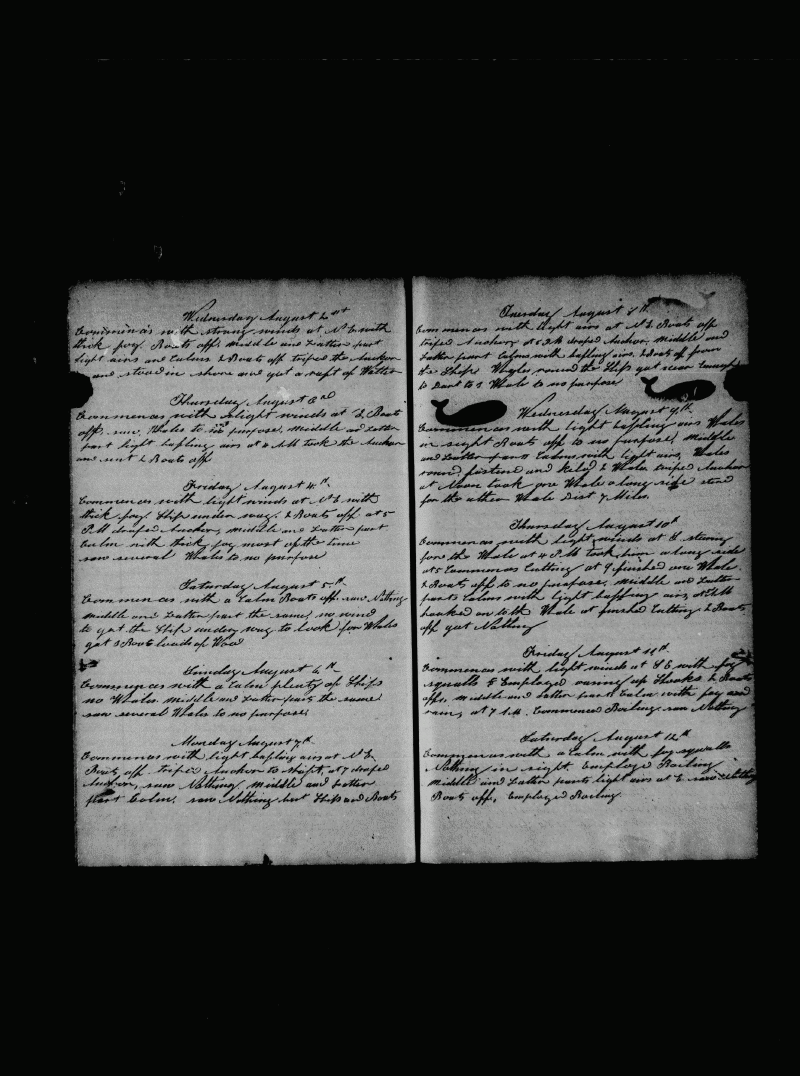 Wednesday August 2nd
Commences with strong winds at N E with
thick fog. Boats off. Middle and Latter part
light airs and Calms 2 Boats off triped the Anchor
and stood in shore and got a raft of Water
Thursday August 3rd
Commences with light winds at Boats
off. saw Whales to no purpose, middle and Latter
part light bafling airs at 4 AM took the Anchor
and sent 2 Boats off
Friday August 4th
Commences with light winds at N E with
thick fog. Ship under way. 2 Boats off. at 5
P.M droped Anchor, middle and Latter part
Calm with thick fog most of the time
saw several Whales to no purpose
Saturday August 5th
Commences with a Calm Boats off. saw Nothing
Middle and Latter part the same, no wind
to get the Ship under way to look for Whales
got 3 Boat loads of Wood
Sunday August 6th
Commences with a Calm plenty of Ships
no Whales. Middle and Latter parts the same
saw several Whales to no purpose
Monday August 7th
Commences with light bafling airs at N E
Boats off triped Anchor to shift, at 7 droped
Anchor, saw Nothing, middle and Latter
part Calm. saw Nothing but Ships and Boats
Tuesday August
Commences with light airs at N E Boats off
triped Anchor, at 5 P.M droped Anchor. Middle and
Latter part Calms with bafling airs. 2 Boats off from
the Ship. Whales round the Ship got near enough
to Dart to 1 Whale to no purpose
Wednesday August 9th
Commences with light bafling airs Whales
in sight Boats off to no purpose, Middle
and Latter parts Calms with light airs, Whales
round. fastened and Kild 2 Whales triped Anchor
at Noon took one Whale along side stood
for the other Whale Dist 7 Miles.
Thursday August 10th
Commences with light winds at S steering
for the Whale at 4 P.M took him along side
at 5 Commences Cutting at 9 finished one Whale
2 Boats off to no purpose. Middle and Latter
parts Calms with light baffling airs at AM
hooked on to the Whale at finshed Cutting 2 Boats
off got Nothing
Friday August 11th
Commences with light winds at S E with fog
squalls Employed
off, Middle and Latter parts Calm with fog and
rain, at 7 A.M. Commenced Boiling saw Nothing
Saturday August 12th
Commences with a Calm with fog squalls
Nothing in sight. Employed Boiling
Middle and Latter parts light airs at E saw Nothing
Boats off, Employed Boiling